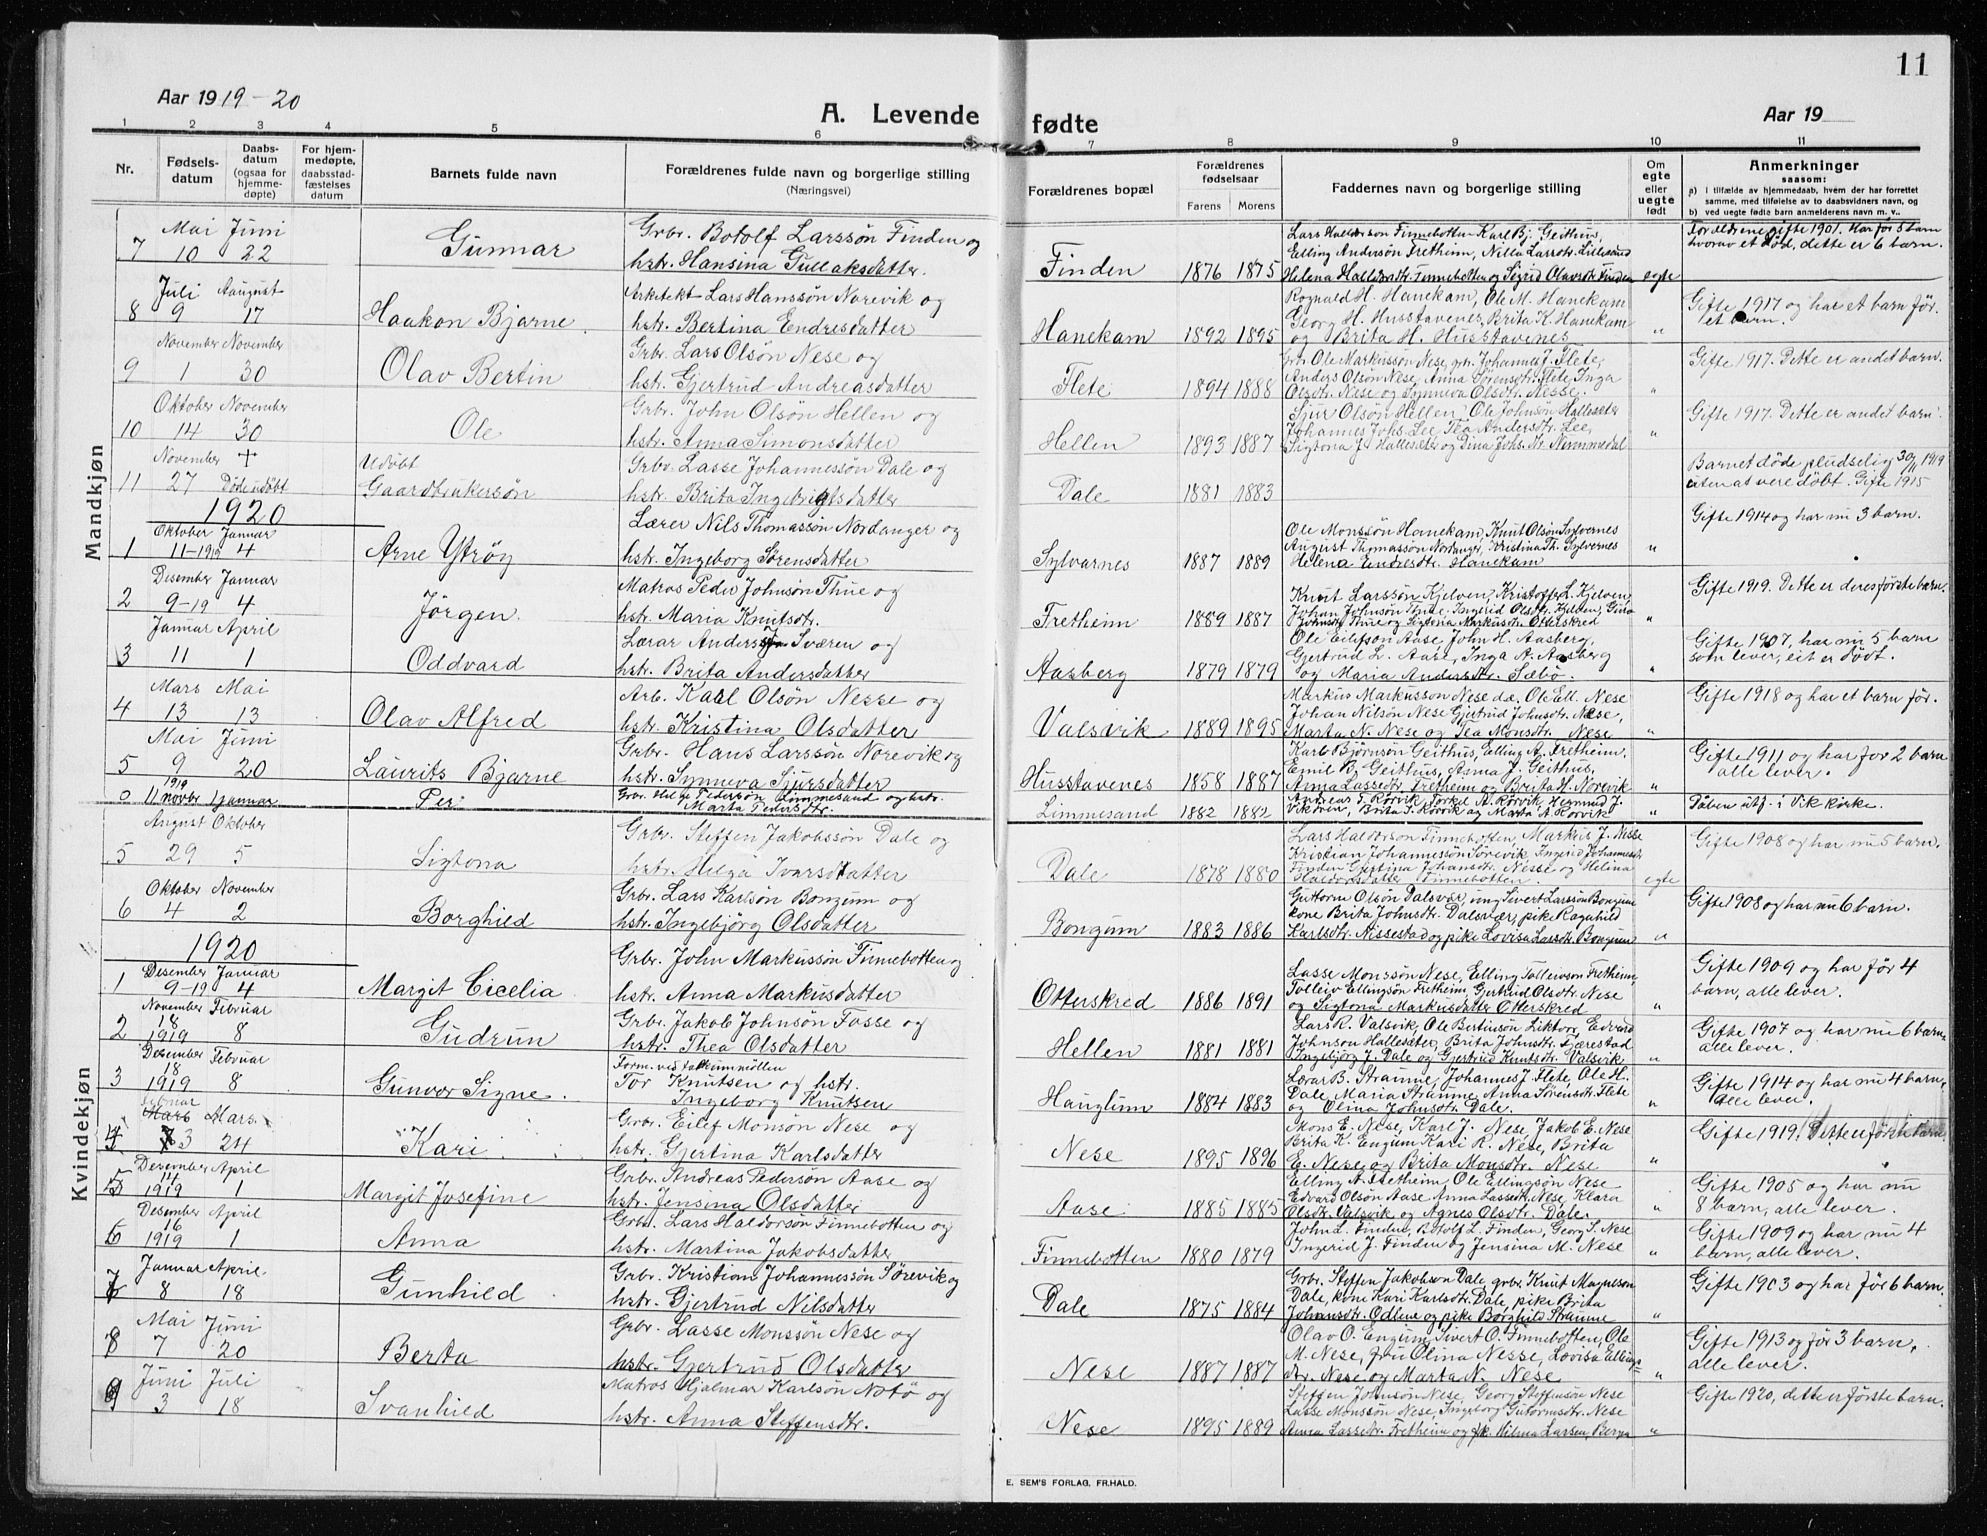 11
Aar 1919-20
A. Levende fødte
Aar 19
1 2 3 4 5 6 7 8 9 10 11
Nr.
Fødsels-datum
Daabs-datum (ogsaa for hjemme-døpte)
For hjem-medøpte, daabsstad-fæstelses datum
Barnets fulde navn
Forældrenes fulde navn og borgerlige stilling
(Næringsvei)
Forældrenes bopæl
Forældrenes fødselsaar
Farens Morens
Faddernes navn og borgerlige stilling
Om egte eller uegte født
Anmerkninger
saasom:
a) I tilfælde av hjemmedaab, hvem der har forrettet samme, med tilføielse av to daabsvidners navn, og
b) ved uegte fødte barn anmelderens navn m. v..
Mandkjøn
Mai Juni Grbr. Botolf Larssön Finden og Lars Haldorson Finnebotten Karl Bj. Geithus, Forældrene gifte 1901. Har för 5 barn
7 10 22 Gunnar hstr. Hansina Gullaksdatter. Finden 1876 1875 Elling Andersön Fretheim, Nilla Larsdtr. Lillesand hvorav et död, dette er 6 barn.
Helena Haldorsdtr. Finnebotten og Sigrid Olavsdtr. Finden egte
Juli August Arkitekt Lars Hanssön Norevik og Rognald H. Hanekam, Ole M. Hanekam Gifte 1917 og har et barn för.
8 9 17 Haakon Bjarne hstr. Bertina Endresdatter Hanekam 1892 1895 Georg H. Husstavenes, Brita K. Hanekam
og Brita H. Husstavenes "
November November Grbr. Lars Olsön Nese og Grbr. Ole Markussön Nese, grbr. Johannes J. Flete, Gifte 1917. Dette er andet barn.
9 1 30 Olav Bertin hstr. Gjertrud Andreasdatter Flete 1894 1888 Anders Olsön Nese, Anna Sörensdtr. Flete, Inga
Olsdtr. Nese og Synneva Olsdtr. Nesse. "
Oktober November Grbr. John Olsön Hellen og Sjur Olsön Hellen, Ole Johnsön Hallesæter Gifte 1917. Dette er andet barn.
10 14 30 Ole hstr. Anna Simonsdatter Hellen 1893 1887 Johannes Johs. Lee, Tea Andersdtr. Lee,
Sigtona J. Hallesæter og Dina Johs. dtr. "
November + Udöbt Grbr. Lasse Johannessön Dale og Barnet döde pludselig 30/11 1919
11 27 Döde udöbt Gaardbrukersön hstr. Brita Ingebrigtsdatter Dale 1881 1883 uten at vere döbt. Gifte 1915
1920
Oktober Januar Lærer Nils Thomassön Nordanger og Ole Monssön Hanekam, Knut Olsön Sylvernes Gifte 1914 og har nu 3 barn.
1 11-1919 4 Arne Ytröy hstr. Ingeborg Sörensdatter Sylvarnes 1887 1889 August Thomassön Nordanger, Kristina Th. Sylvernes "
Helena Endresdtr. Hanekam
Desember Januar Matros Peder Johnsön Thue og Knut Larssön Kjelven, Kristoffer L. Kjelven, Gifte 1919. Dette er deres förste barn.
2 9-19 4 Jörgen. hstr. Maria Knutsdtr. Fretheim 1889 1887 Johan Johnsön Thue, Ingerid Olsdtr. Kjelven,
Thue og Sigtona Markusdtr. Otterskred "
Januar April Lærar Anders Sværen og Ole Eilefson Aase, John H. Aasberg, Gifte 1907, har nu 5 barn
3 11 1 Oddvard hstr. Brita Andersdatter Aasberg 1879 1879 Gjertrud L. Aase, Inga A. Aasberg som lever, eit er dödt.
og Maria Andersdtr. Sæbö. "
Mars Mai Arb. Karl Olsön Nesse og Markus Markusson Nese d.æ. Ole Ell. Nese Gifte 1918 og har et barn för.
4 13 13 Olav Alfred hstr. Kristina Olsdatter Valsvik 1889 1895 Johan Nilsön Nese Gjertrud Johnsdtr. Nese,
Marta N. Nese og Tea Monsdtr. Nese "
Mai Juni Grbr. Hans Larssön Norevik og Karl Björnsön Geithus, Elling A. Fretheim, Gifte 1911 og har for 2 barn
5 9 20 Laurits Bjarne hstr. Synneva Sjursdatter Husstavenes 1858 1887 Emil B. Geithus, Anna J. Geithus, alle lever.
Anna Lassedtr. Fretheim og Brita H. Norevik "
0 1919 11 novbr 1 januar Per Grbr. Helge Pedersön Limmesand og hstr. Marta Pedersdtr. Limmesand 1882 1882 Andreas T. Rörvik, Torkel A. Rörvik, Hermund J. Vikören, Brita T. Rörvik og Marta A. Rörvik " Dåben utf. i Vik kirke.
Kvindekjøn
August Oktober Grbr. Steffen Jakobssön Dale og Lars Haldorson Finnebotten, Markus J. Nesse Gifte 1908 og har nu 5 barn.
5 29 5 Sigtona hstr. Helga Ivarsdatter Dale 1878 1880 Kristian Johannessön Sörevik, Ingerid Johannesdtr.
Finden Gjertina Johansdtr. Nesse og Helena
Haldorsdatter Finnebotten. egte
Oktober November Grbr. Lars Karlsön Bongum og Guttorm Olsön Dalsvær, ung. Sivert Larssön Bongum Gifte 1908 og har nu 6 barn.
6 4 2 Borghild hstr. Ingebjörg Olsdatter Bongum 1883 1886 kone Brita Johnsdtr. Dalsvær, pike Ragnhild
Karlsdtr. Nissestad og pike Lovisa Larsdtr. Bongum "
1920
Desember Januar Grbr. John Markussön Finnebotten og Lasse Monssön Nese, Elling Tolleivson Fretheim, Gifte 1909 og har för 4
1 9-19 4 Margit Cicelia hstr. Anna Markusdatter Otterskred 1886 1891 Tolleiv Ellingsön Fretheim, Gjertrud Olsdtr. Nese barn, alle lever.
og Sigtona Markusdatter Otterskred "
November Februar Grbr. Jakob Johnsön Fosse og Lars R. Valsvik, Ole Bertinsön Liktvor, Edvard Gifte 1907 og har nu 6 barn,
2 18 1919 8 Gudrun hstr. Thea Olsdatter Hellen 1881 1881 Johnson Hallesæter, Brita Johnsdtr. Tjærestad alle lever.
Ingebjörg J. Dale og Gjertrud Knutsdtr. Valsvik "
Desember Februar Form. vis talkummöllen Lærar B. Straume, Johannes J. Flete, Ole H. Gifte 1914 og har nu 4 barn,
3 18 1919 8 Gunvor Signe. Tor Knutsen og hstr. Ingeborg Knutsen Hauglum 1884 1883 Dale, Maria Straume, Anna Sörensdtr. Flete alle lever.
og Olina Johnsdtr. Dale. "
Februar Mars Grbr. Eilef Monsön Nese og Mons E. Nese, Karl J. Nese, Jakob E. Nese Gifte 1919. Dette er förste barn.
4 3 24 Kari hstr. Gjertina Karlsdatter Nese 1895 1896 Brita K. Engum Kari R. Nese, Brita
E. Nese og Brita Monsdtr. Nese "
Desember April Grbr. Andreas Pedersön Aase og Elling A. Fretheim, Ole Ellingsön Nese Gifte 1905 og har nu
5 14 1919 1 Margit Josefine hstr. Jensina Olsdatter Aase 1885 1885 Edvard Olsön Aase Anna Lassedtr. Nese, Klara 8 barn, alle lever.
Olsdtr. Valsvik og Agnes Olsdtr. Dale. "
Desember April Grbr. Lars Haldorsön Finnebotten og John L. Finden, Botolf L. Finden, Georg S. Nese Gifte 1909 og har nu 4
6 16 1919 1 Anna hstr. Martina Jakobsdatter Finnebotten 1880 1879 Ingerid J. Finden og Jensina M. Nese " barn, alle lever.
Januar April Grbr. Kristian Johannessön Sörevik og Grbr. Steffen Jakobson Dale, grbr. Knut Magneson Gifte 1903 og har för 6 barn
7 8 18 Gunhild hstr. Gjertrud Nilsdatter Dale 1875 1884 Dale, kone Kari Karlsdtr. Dale, pike Brita
Johnsdtr. Odlene og pike Borghild Straume "
Mai Juni Grbr. Lasse Monssön Nese og Olav O. Engum, Sivert O. Finnebotten, Ole Gifte 1913 og för 3 barn,
8 7 20 Berta hstr. Gjertrud Olsdatter Nese 1887 1887 M. Nese, fru Olina Nesse, Lovisa Ellings- alle lever.
dtr. Nese og Marta N. Nese "
Juni Juli Matros Hjalmar Karlsön Notö og Steffen Johnsön Nese, Georg Steffensön Nese Gifte 1920, dette er förste barn.
9 3 18 Svanhild hstr. Anna Steffensdtr. Nese 1895 1889 Lasse Monssön Nese, Ingeborg Gutormsdtr. Nese
Anna Lassedtr. Fretheim og frk. Hilma Larsen, Bergen "
E. SEM'S FORLAG, FR.HALD.